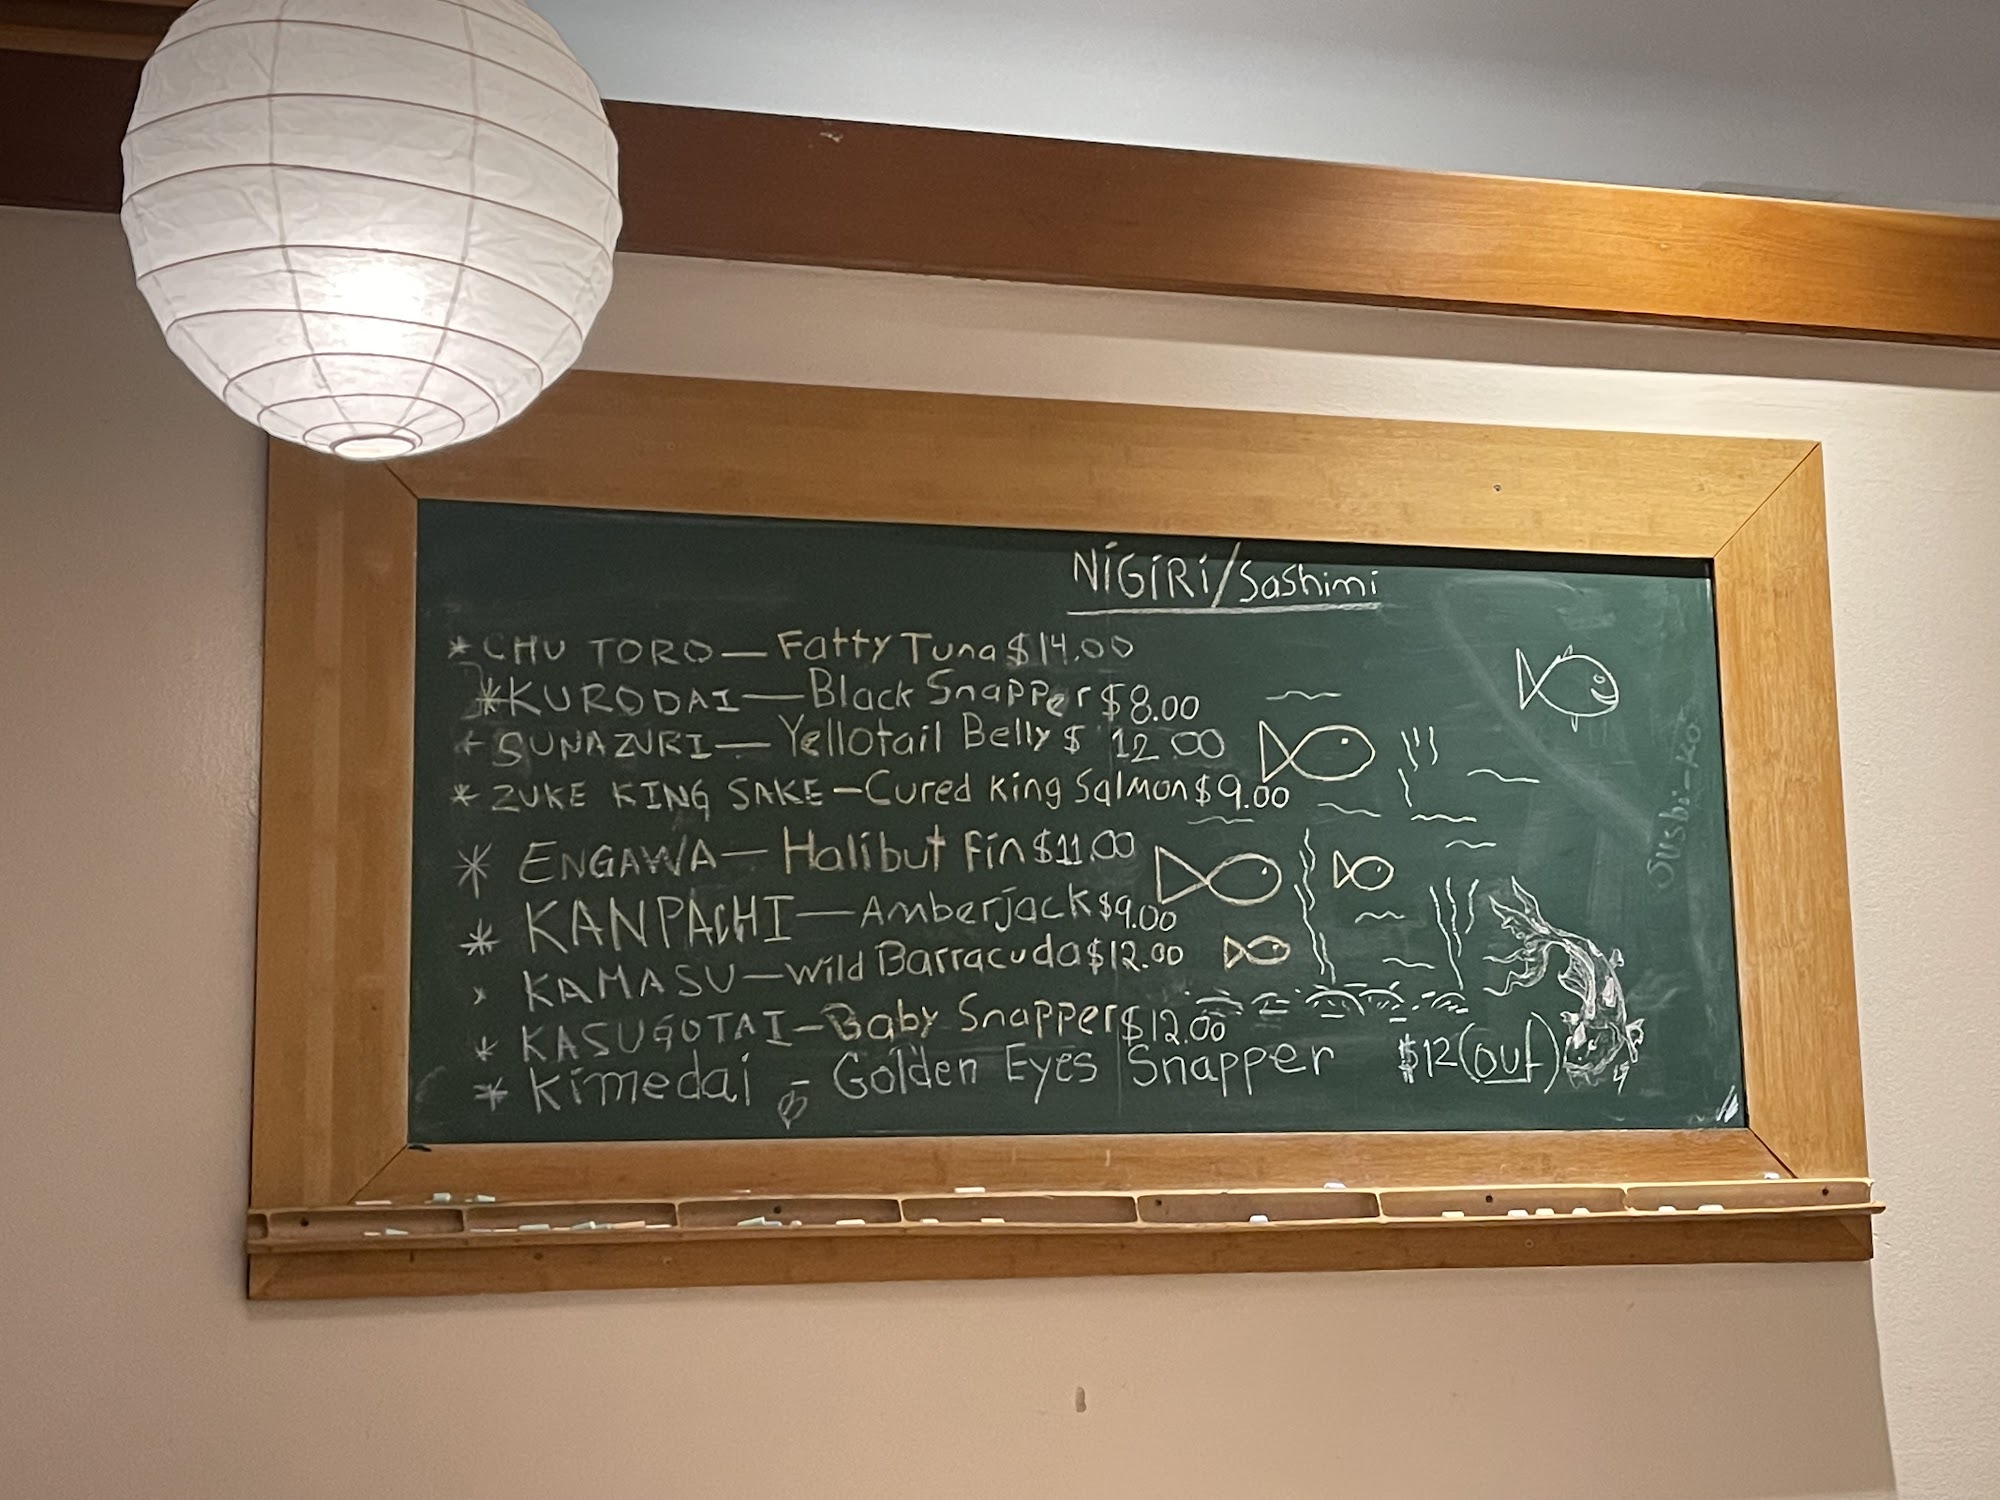 NiGiRi/Sashimi
* CHU TORO — Fatty Tuna $14.00
* KURODAI — Black Snapper $8.00
+ SUNAZURI — Yellotail Belly $ 12.00
* ZUKE KING SAKE — Cured King Salmon $9.00
* ENGAWA — Halibut Fin $11.00
* KANPACHI — Amberjack $9.00
* KAMASU — Wild Barracuda $12.00
* KASUGOTAI — Baby Snapper $12.00
* Kimedai - Golden Eyes Snapper $12 (out)
Sushi-Ko